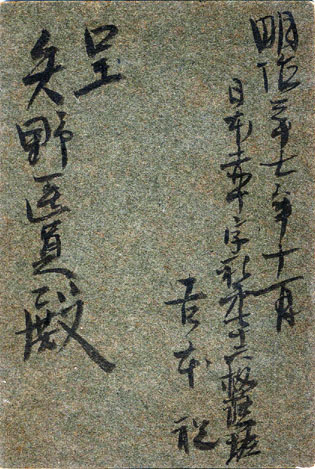 明治三十七年十一月
日本赤十字社第六十六救護班
吉本
呈
矢野医員殿